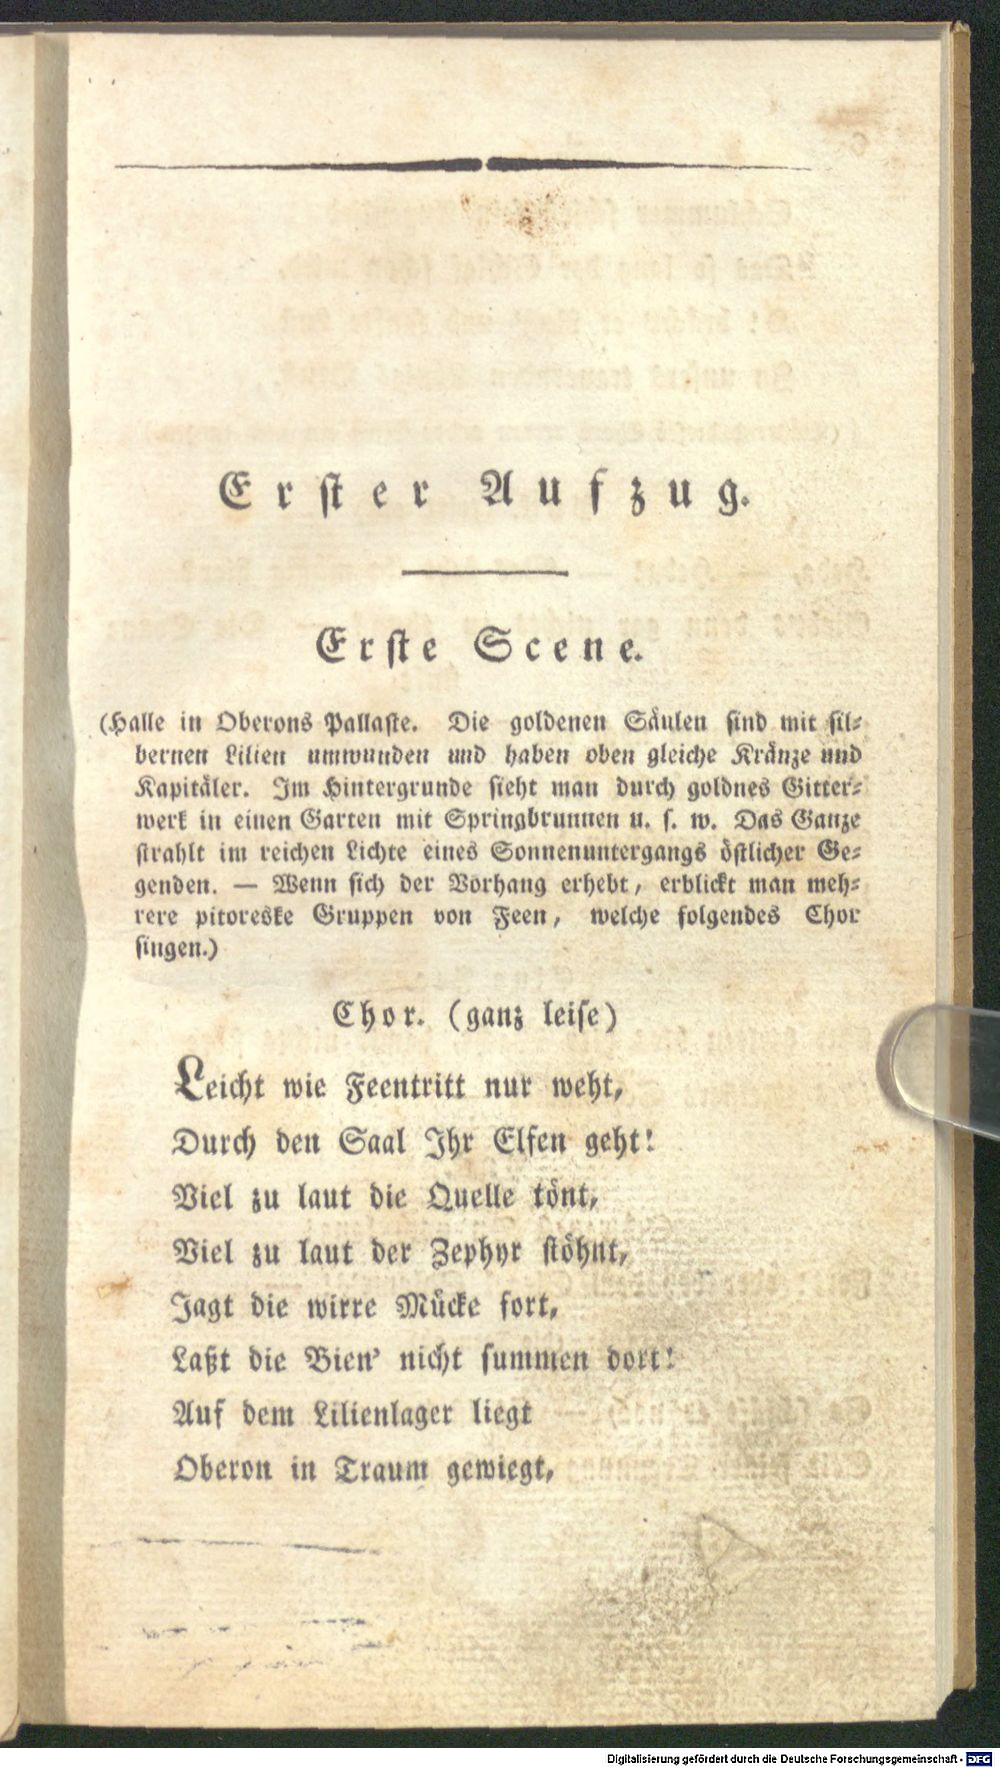 Erster Aufzug.
Erste Scene.
(Halle in Oberons Pallaste. Die goldenen Säulen sind mit sil-
bernen Lilien umwunden und haben oben gleiche Kränze und
Kapitäler. Im Hintergrunde sieht man durch goldnes Gitter-
werk in einen Garten mit Springbrunnen u. s. w. Das Ganze
strahlt im reichen Lichte eines Sonnenuntergangs östlicher Ge-
genden. — Wenn sich der Vorhang erhebt, erblickt man meh-
rere pitoreske Gruppen von Feen, welche folgendes Chor
singen.)
Chor. (ganz leise)
Leicht wie Feentritt nur weht,
Durch den Saal Ihr Elfen geht!
Viel zu laut die Quelle tönt,
Viel zu laut der Zephyr stöhnt,
Jagt die wirre Mücke fort,
Laßt die Bien' nicht summen dort!
Auf dem Lilienlager liegt
Oberon in Traum gewiegt,
Digitalisierung gefördert durch die Deutsche Forschungsgemeinschaft - DFG